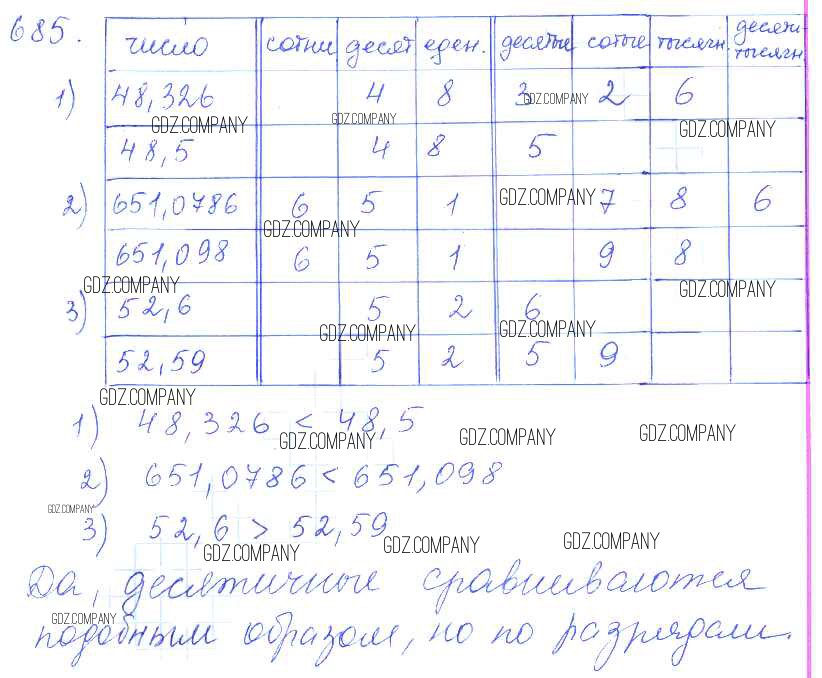 685.
число сотни десят еден. десятые сотые тысячн. десяти тысячн.
1) 48,326 4 8 3 2 6
GDZ.COMPANY GDZ.COMPANY GDZ.COMPANY GDZ.COMPANY
48,5 4 8 5
2) 651,0786 6 5 1 GDZ.COMPANY 7 8 6
GDZ.COMPANY
651,098 6 5 1 9 8
GDZ.COMPANY GDZ.COMPANY
3) 52,6 5 2 6
GDZ.COMPANY GDZ.COMPANY
52,59 5 2 5 9
GDZ.COMPANY
1) 48,326 < 48,5
GDZ.COMPANY GDZ.COMPANY GDZ.COMPANY
2) 651,0786 < 651,098
GDZ.COMPANY
3) 52,6 > 52,59
GDZ.COMPANY GDZ.COMPANY GDZ.COMPANY
Да, десятичные сравниваются
GDZ.COMPANY
подобным образом, но по разрядам.